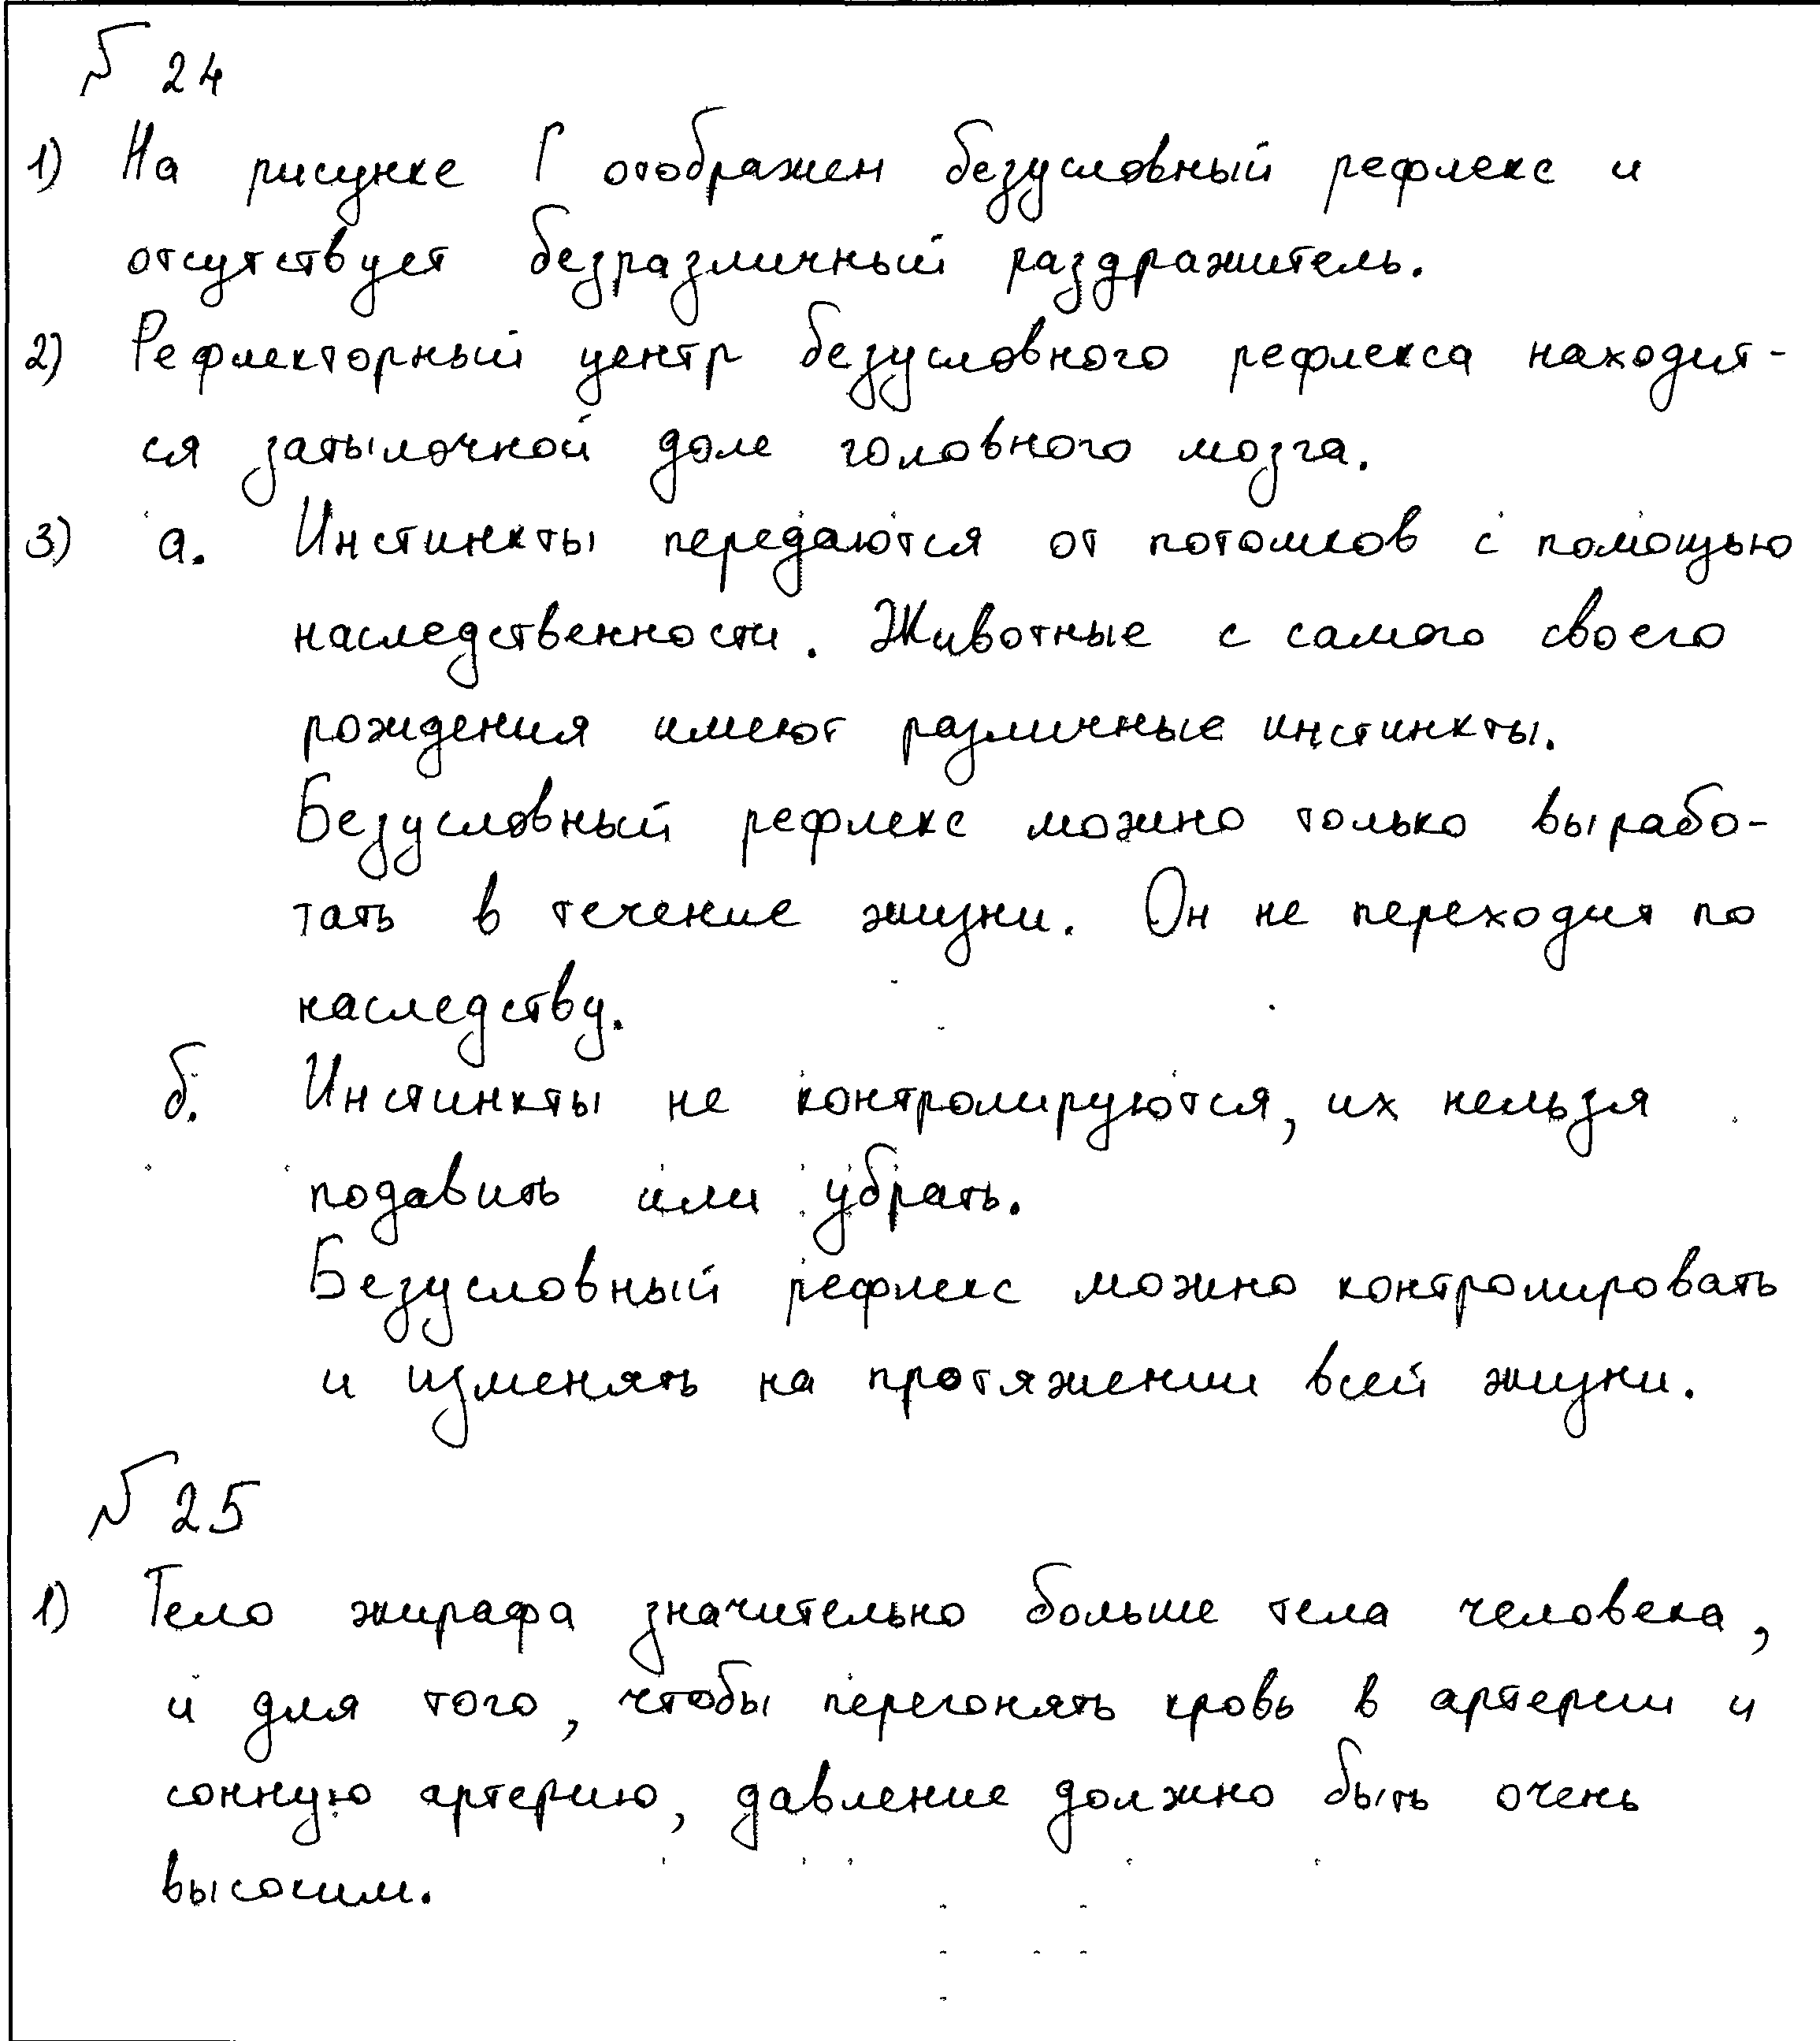 № 24
1) На рисунке Г отображен безусловный рефлекс и
отсутствует безразличный раздражитель.
2) Рефлекторный центр безусловного рефлекса находит-
ся затылочной доле головного мозга.
3) а. Инстинкты передаются от потомков с помощью
наследственности. Животные с самого своего
рождения имеют различные инстинкты.
Безусловный рефлекс можно только вырабо-
тать в течение жизни. Он не переходит по
наследству.
б. Инстинкты не контролируются, их нельзя
подавить или убрать.
Безусловный рефлекс можно контролировать
и изменять на протяжении всей жизни.
№ 25
1) Тело жирафа значительно больше тела человека,
и для того, чтобы перегонять кровь в артерии и
сонную артерию, давление должно быть очень
высоким.